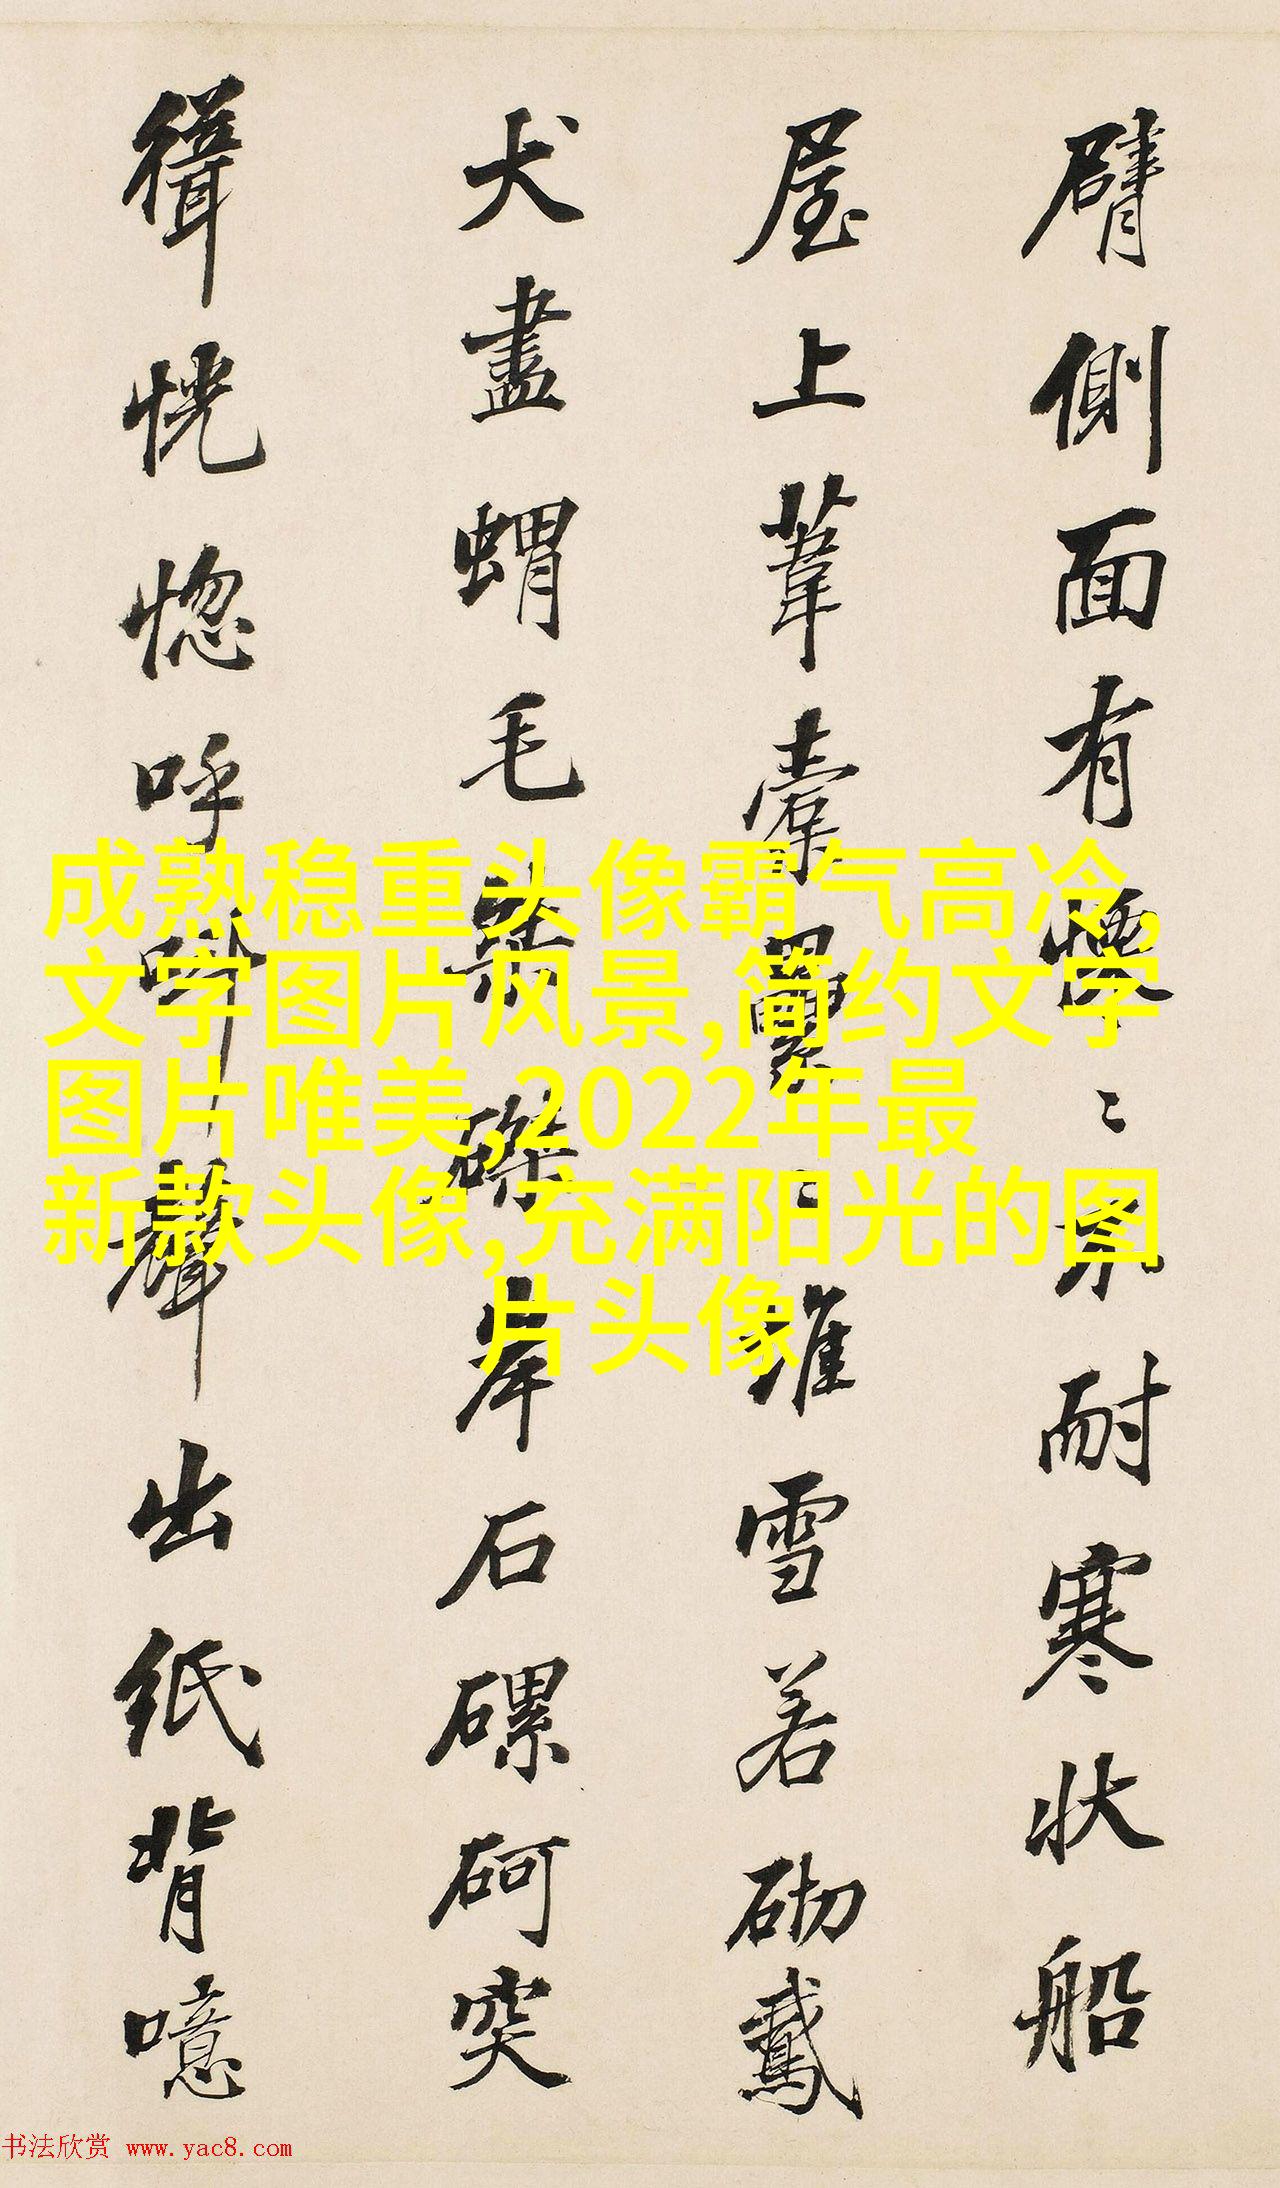 臂側面有慄〻不耐寒狀船
屋上葦橐纍〻堆雪若砌鵞
犬盡蝟毛磔岸石磥砢突
恍惚呼叫聲出紙背噫
成熟稳重头像霸气高冷,
文字图片风景,简约文字
图片唯美,2022年最
新款头像,充满阳光的图
片头像
书法欣赏 www.yac8.com